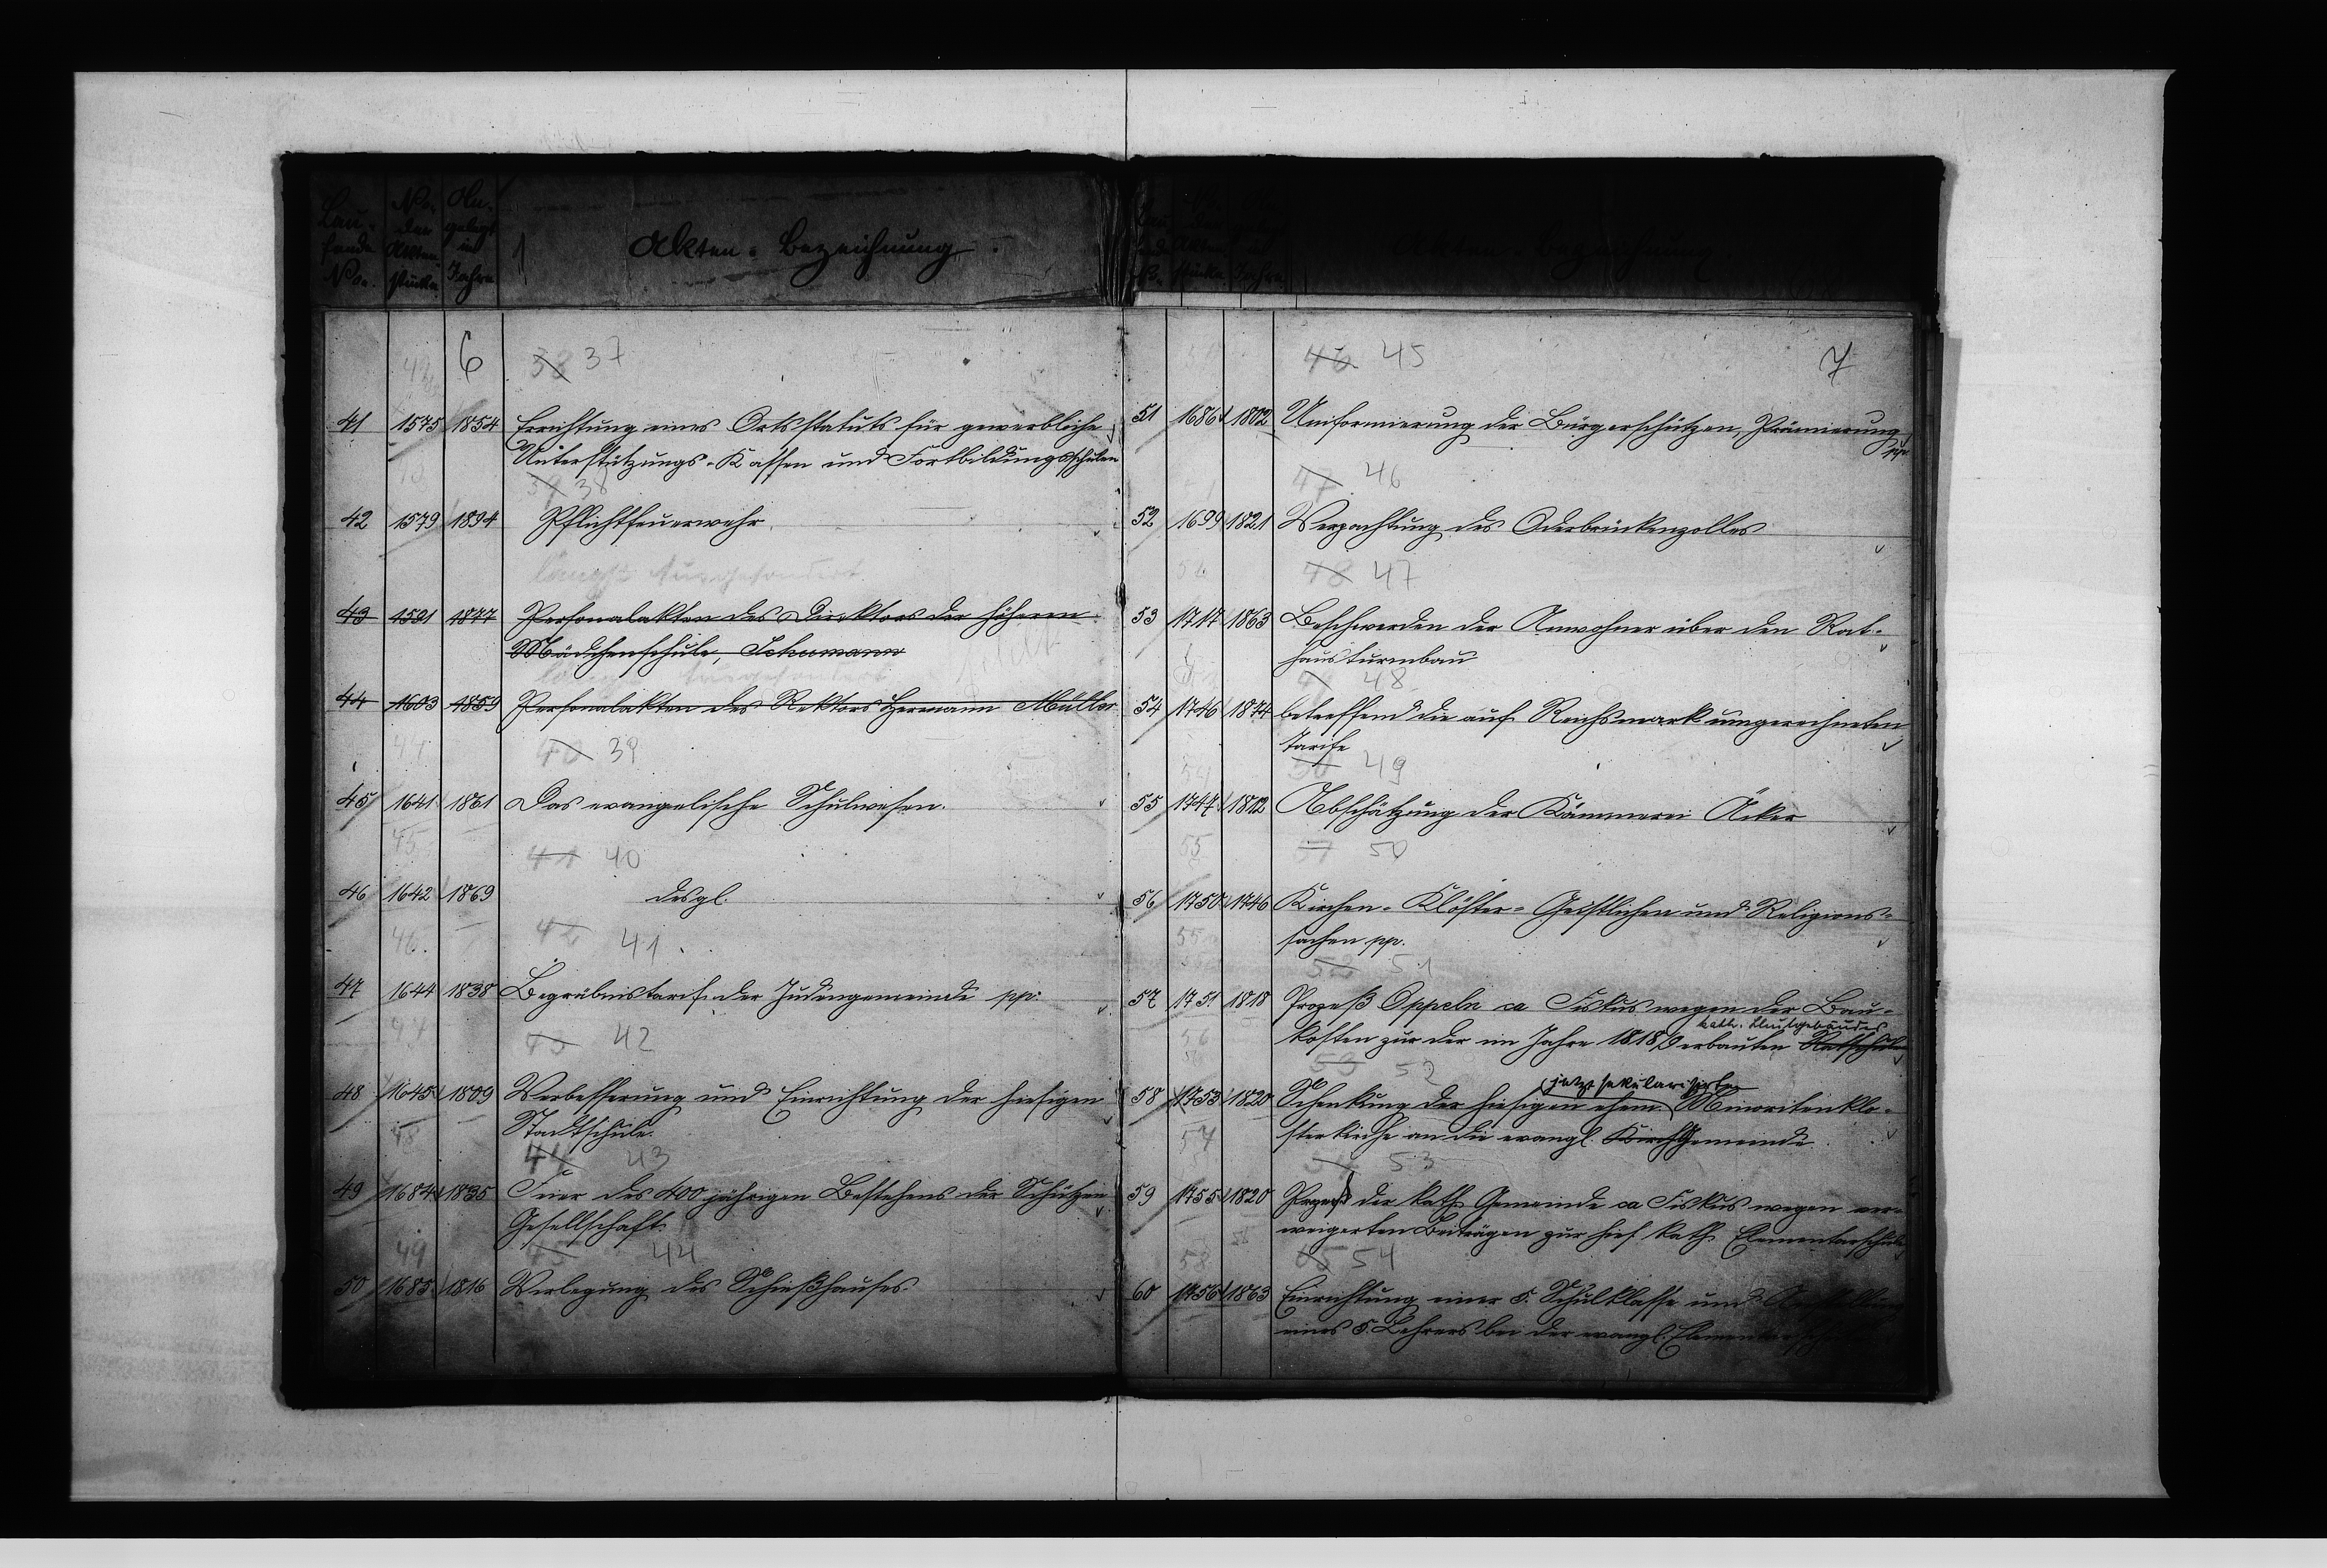 Lau- fende No.
No. der Akten- stücke
An- gelegt im Jahre
Akten-Bezeichnung.
6
38 37
41 1575 1854 Errichtung eines Ortsstatuts für gewerbliche
Unterstützungs-Kassen und Fortbildungsschulen
39 38
42 1579 1894 Pflichtfeuerwehr.
längst ausgesondert
43 1591 1877 Personalakten des Direktors der höheren
Mädchenschule, Schumann
ausgesondert
44 1603 1859 Personalakten des Rektors Hermann Müller
44
40 39
45 1641 1861 Das evangelische Schulwesen.
45
41 40
46 1642 1869 desgl.
46.
42 41.
47 1644 1838 Begräbnistarif der Judengemeinde pp.
47
43 42
48 1645 1809 Verbesserung und Einrichtung der hiesigen
Stadtschule.
48
44 43
49 1684 1835 Feier des 400 jährigen Bestehens der Schützen
Gesellschaft.
49
45 44
50 1685 1816 Verlegung des Schießhauses.
Akten-Bezeichnung.
7
46 45
51 1686 1802 Uniformierung der Bürgerschützen, Prämierung
pp.
47 46
52 1699 1821 Verpachtung des Oderbrückenzolles
48 47
53 1717 1863 Beschwerden der Anwohner über den Rat-
hausturmbau
48
54 1746 1874 betreffend die auf Reichsmark umgerechneten
Tarife
54
50 49
55 1747 1802 Abschätzung der Kämmerei Äcker
55
51 50
56 1750 1746 Kirchen- Klöster- Geistlichen und Religions-
sachen pp.
55
51
57 1751 1818 Prozeß Oppeln ca Fiskus wegen der Bau-
kath. Schulgebäudes
kosten zur der im Jahre 1818 erbauten
56
53 52
(jetzt säkularisierten
58 1753 1820 Schenkung der hiesigen ehem. Minoritenklo-
sterkirche an die evangl. Kirch Gemeinde.
57
54 53
59 1755 1820 Prozeß der kath. Gemeinde ca Fiskus wegen ver-
weigerten Beiträgen zur hies. kath. Elementarschule
58
55 54
60 1756 1863 Einrichtung einer 5. Schulklasse und
eines 5. Lehrers bei der evangl.